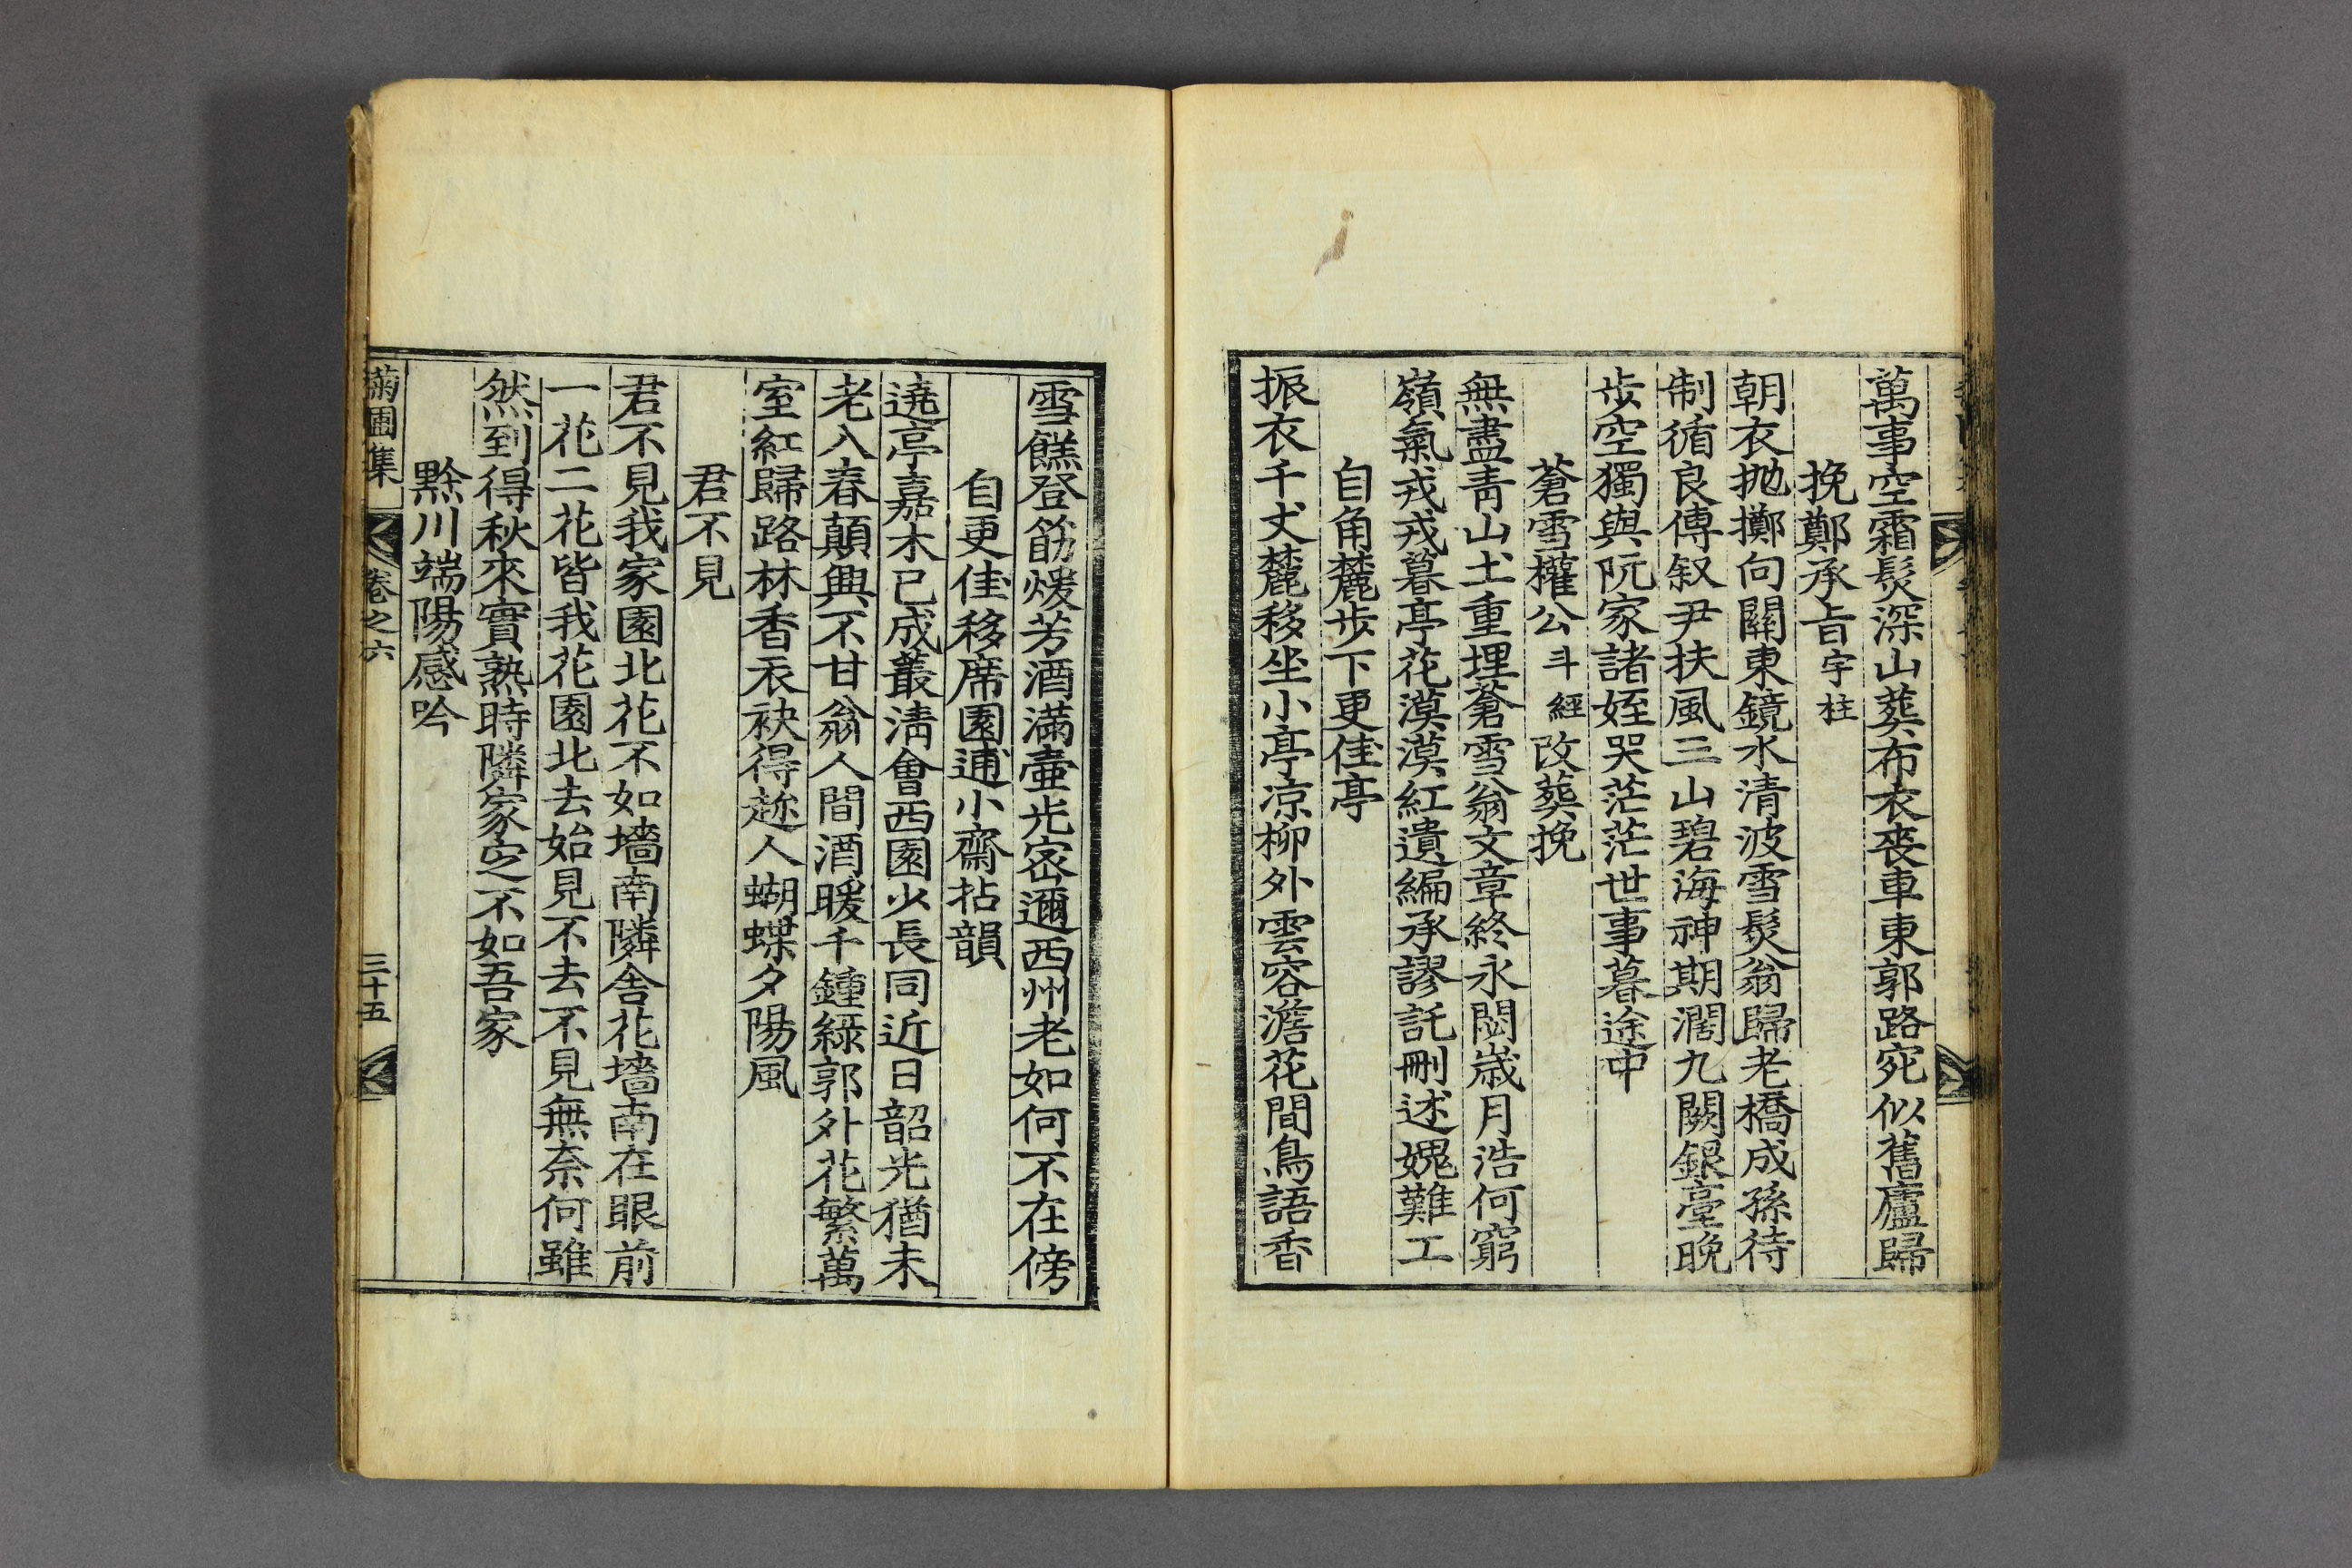 萬事空霜髮深山葬布衣喪車東郭路宛似舊廬歸
挽鄭承旨宇柱
朝衣抛擲向關東鏡水清波雪髮翁歸老橋成孫待
制循良傳叙尹扶風三山碧海神期濶九闕銀臺晩
步空獨與阮家諸姪哭茫茫世事暮途中
蒼雪權公斗經改葬挽
無盡靑山土重埋蒼雪翁文章終永閟歲月浩何窮
嶺氣戎戎暮亭花漠漠紅遺編承謬託刪述媿難工
自角麓步下更佳亭
振衣千丈麓移坐小亭凉柳外雲容澹花間鳥語香
雪饌登筯煖芳酒滿壷光密邇西州老如何不在傍
自更佳移席園逋小齋拈韻
遶亭嘉木已成叢淸會西園少長同近日韶光猶未
老入春顛興不甘翁人間酒暖千鍾綠郭外花繁萬
室紅歸路林香衣袂得趂人蝴蝶夕陽風
君不見
君不見我家園北花不如墻南隣舎花墻南在眼前
一花二花皆我花園北去始見不去不見無奈何雖
然到得秋來實熟時隣家定不如吾家
黔川端陽感吟
菊圃集
卷之六
三十五